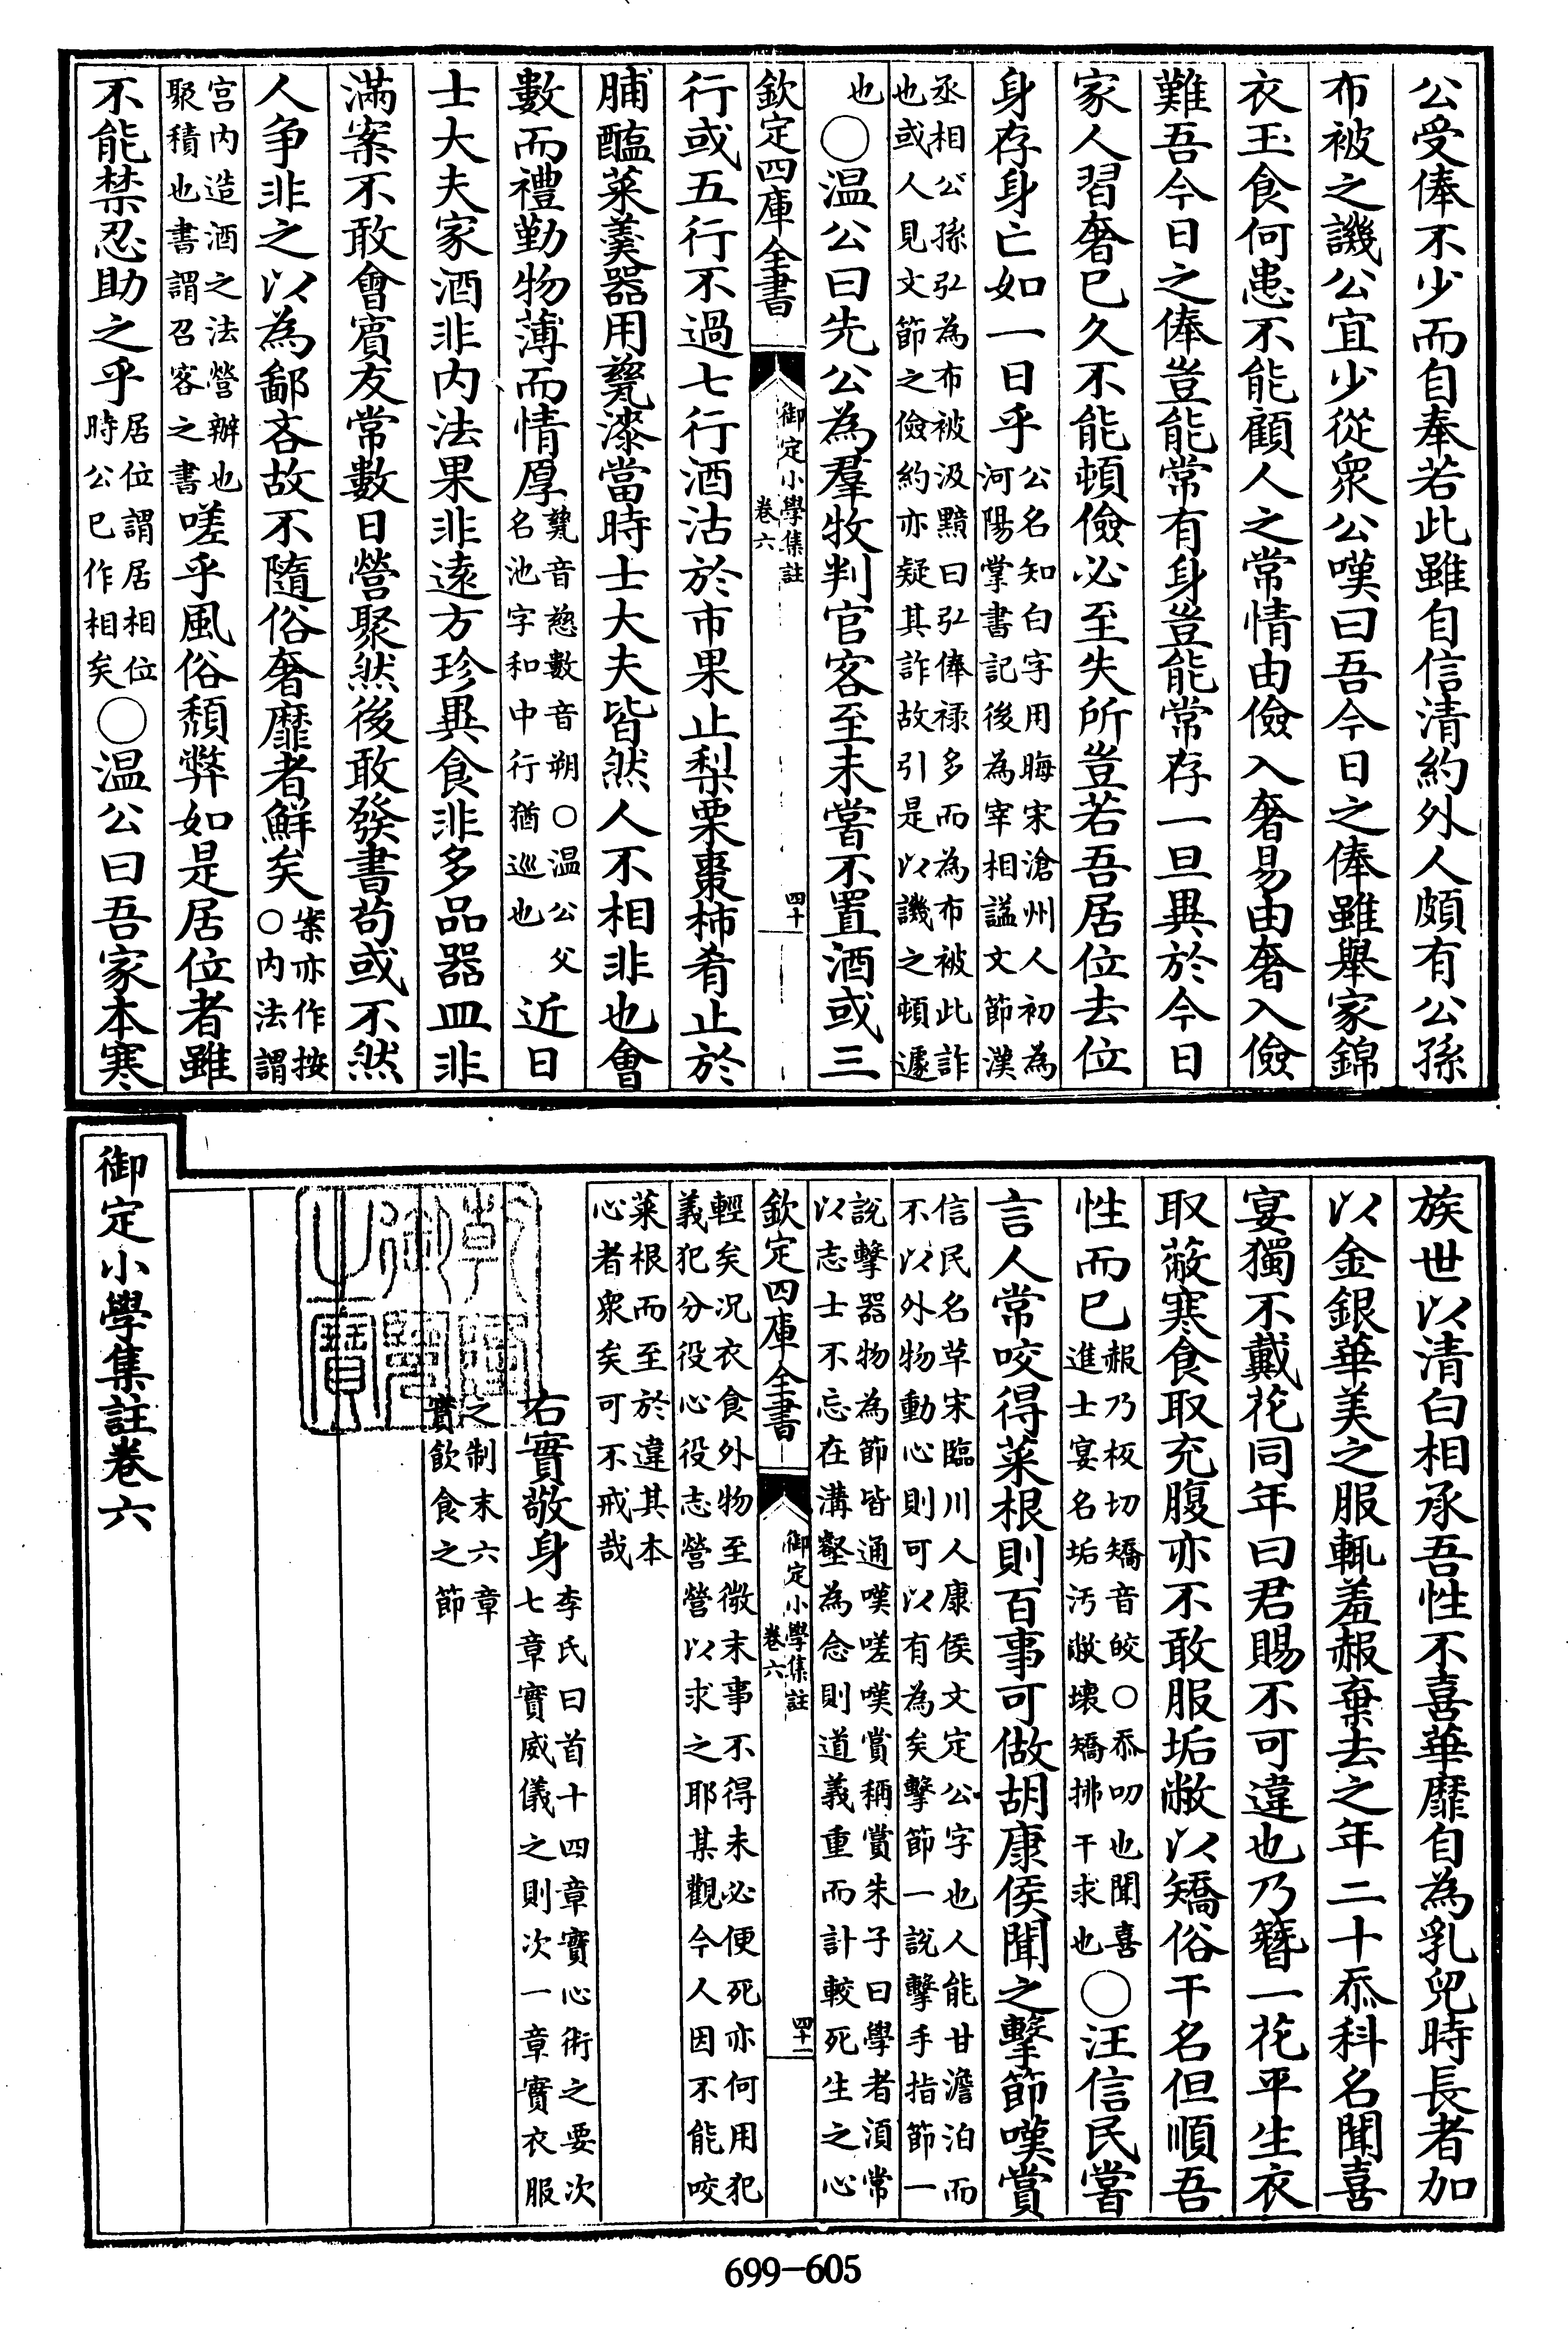 公受俸不少而自奉若此雖自信清約外人頗有公孫
布被之譏公宜少從衆公嘆曰吾今日之俸雖舉家錦
衣玉食何患不能顧人之常情由儉入奢易由奢入儉
難吾今日之俸豈能常有身豈能常存一旦異於今日
家人習奢已久不能頓儉必至失所豈若吾居位去位
身存身亡如一日乎公名知白字用晦宋滄州人初為
河陽掌書記後為宰相謚文節漢
丞相公孫弘為布被汲黯曰弘俸禄多而為布被此詐
也或人見文節之儉約亦疑其詐故引是以譏之頓遽
也○温公曰先公為羣牧判官客至未嘗不置酒或三
欽定四庫全書
御定小學集註
卷六
四十
行或五行不過七行酒沽於市果止梨栗棗柿肴止於
脯醢菜羹器用甆漆當時士大夫皆然人不相非也會
數而禮勤物薄而情厚甆音慈數音朔○温公父
名池字和中行猶巡也近日
士大夫家酒非内法果非遠方珍異食非多品器皿非
滿案不敢會賓友常數日營聚然後敢發書苟或不然
人争非之以為鄙吝故不隨俗奢靡者鮮矣案亦作按
○内法謂
宫内造酒之法營辦也
聚積也書謂召客之書嗟乎風俗頽弊如是居位者雖
不能禁忍助之乎居位謂居相位
時公已作相矣○温公曰吾家本寒
族世以清白相承吾性不喜華靡自為乳兒時長者加
以金銀華美之服輒羞赧棄去之年二十忝科名聞喜
宴獨不戴花同年曰君賜不可違也乃簪一花平生衣
取蔽寒食取充腹亦不敢服垢敝以矯俗干名但順吾
性而已赧乃板切矯音皎○忝叨也聞喜
進士宴名垢汚敝壞矯拂干求也○汪信民嘗
言人常咬得菜根則百事可做胡康侯聞之擊節嘆賞
信民名草宋臨川人康侯文定公字也人能甘澹泊而
不以外物動心則可以有為矣擊節一說擊手指節一
說擊器物為節皆通嘆嗟嘆賞稱賞朱子曰學者須常
以志士不忘在溝壑為念則道義重而計較死生之心
欽定四庫全書
御定小學集註
卷六
四十一
輕矣况衣食外物至微末事不得未必便死亦何用犯
義犯分役心役志營營以求之耶某觀今人因不能咬
菜根而至於違其本
心者衆矣可不戒哉
右實敬身李氏曰首十四章實心術之要次
七章實威儀之則次一章實衣服
之制末六章
實飲食之節
乾隆
御覽
之寶
御定小學集註卷六
699-605